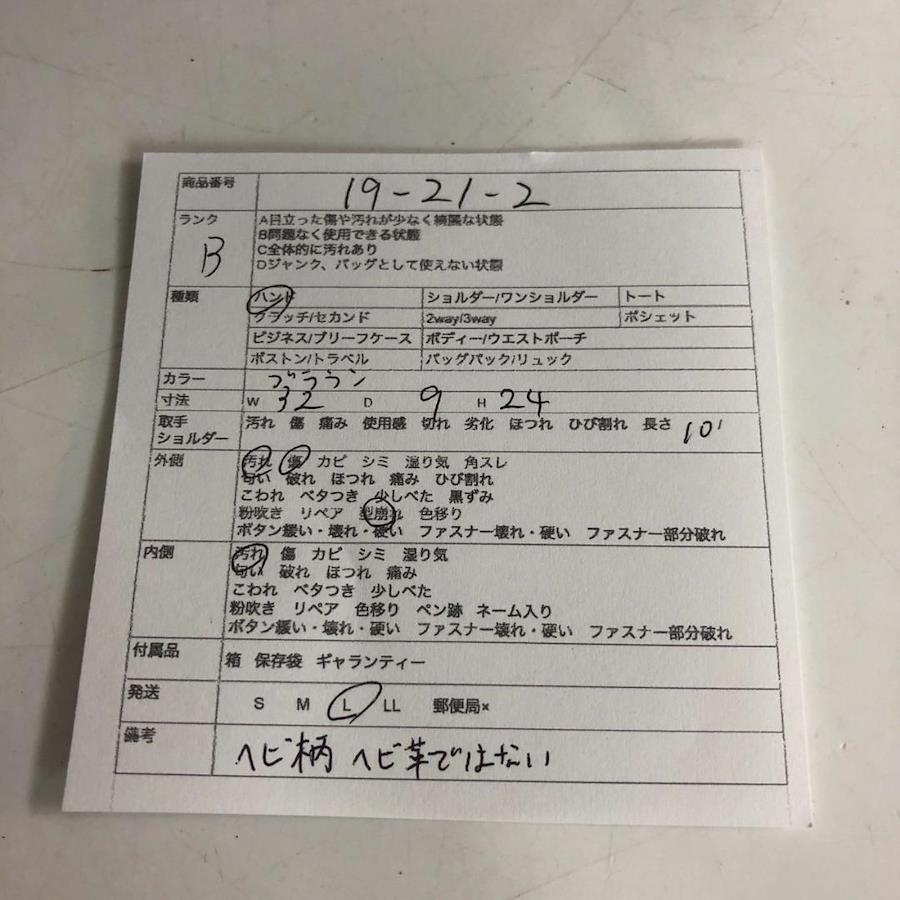 商品番号 19-21-2
ランク B
A目立った傷や汚れが少なく綺麗な状態
B問題なく使用できる状態
C全体的に汚れあり
Dジャンク、バッグとして使えない状態
種類 ハンド ショルダー/ワンショルダー トート
クラッチ/セカンド 2way/3way ポシェット
ビジネス/ブリーフケース ボディー/ウエストポーチ
ボストン/トラベル バッグパック/リュック
カラー ブラウン
寸法 W 32 D 9 H 24
取手 汚れ 傷 痛み 使用感 切れ 劣化 ほつれ ひび割れ 長さ 10
ショルダー
外側 汚れ 傷 カビ シミ 湿り気 角スレ
匂い 破れ ほつれ 痛み ひび割れ
こわれ ベタつき 少しべた 黒ずみ
粉吹き リペア 型崩れ 色移り
ボタン緩い・壊れ・硬い ファスナー壊れ・硬い ファスナー部分破れ
内側 汚れ 傷 カビ シミ 湿り気
匂い 破れ ほつれ 痛み
こわれ ベタつき 少しべた
粉吹き リペア 色移り ペン跡 ネーム入り
ボタン緩い・壊れ・硬い ファスナー壊れ・硬い ファスナー部分破れ
付属品 箱 保存袋 ギャランティー
発送 S M L LL 郵便局×
備考 ヘビ柄 ヘビ革ではない